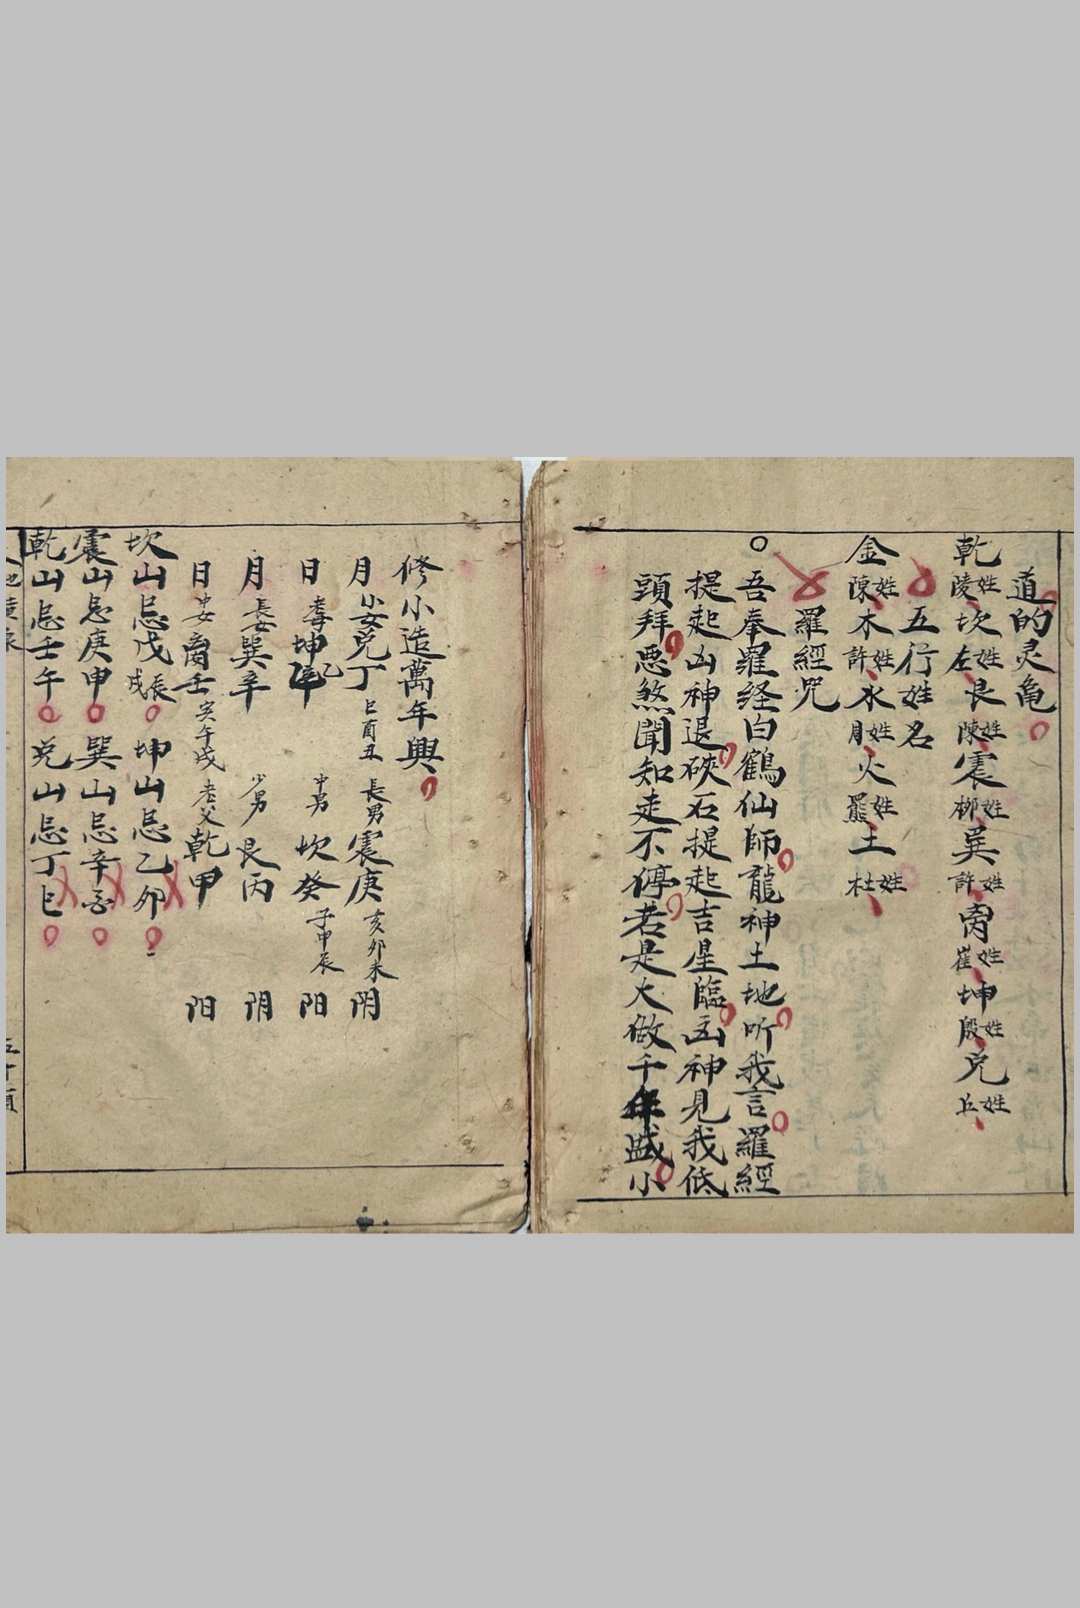 道的灵亀
乾陵姓坎左姓艮陳姓震柳姓巽許姓离崔姓坤殷姓兑丘姓
五行姓名
金陳姓木許姓水月姓火羅姓土杜姓
羅經咒
吾奉羅経白鶴仙師龍神土地听我言羅經
提起凶神退硤石提起吉星臨凶神見我低
頭拜悪煞聞知走不停若是大做千年盛小
修小造萬年興
月少女兑丁巳酉丑 長男震庚亥卯未 阴
日 坤乙 中男坎癸子申辰 阳
月長女巽辛 少男艮丙 阴
日中女离壬寅午戌 老父乾甲 阳
坎山忌戊辰戌 坤山忌乙卯
震山忌庚申 巽山忌辛
乾山忌壬午 兑山忌丁巳
五十頁